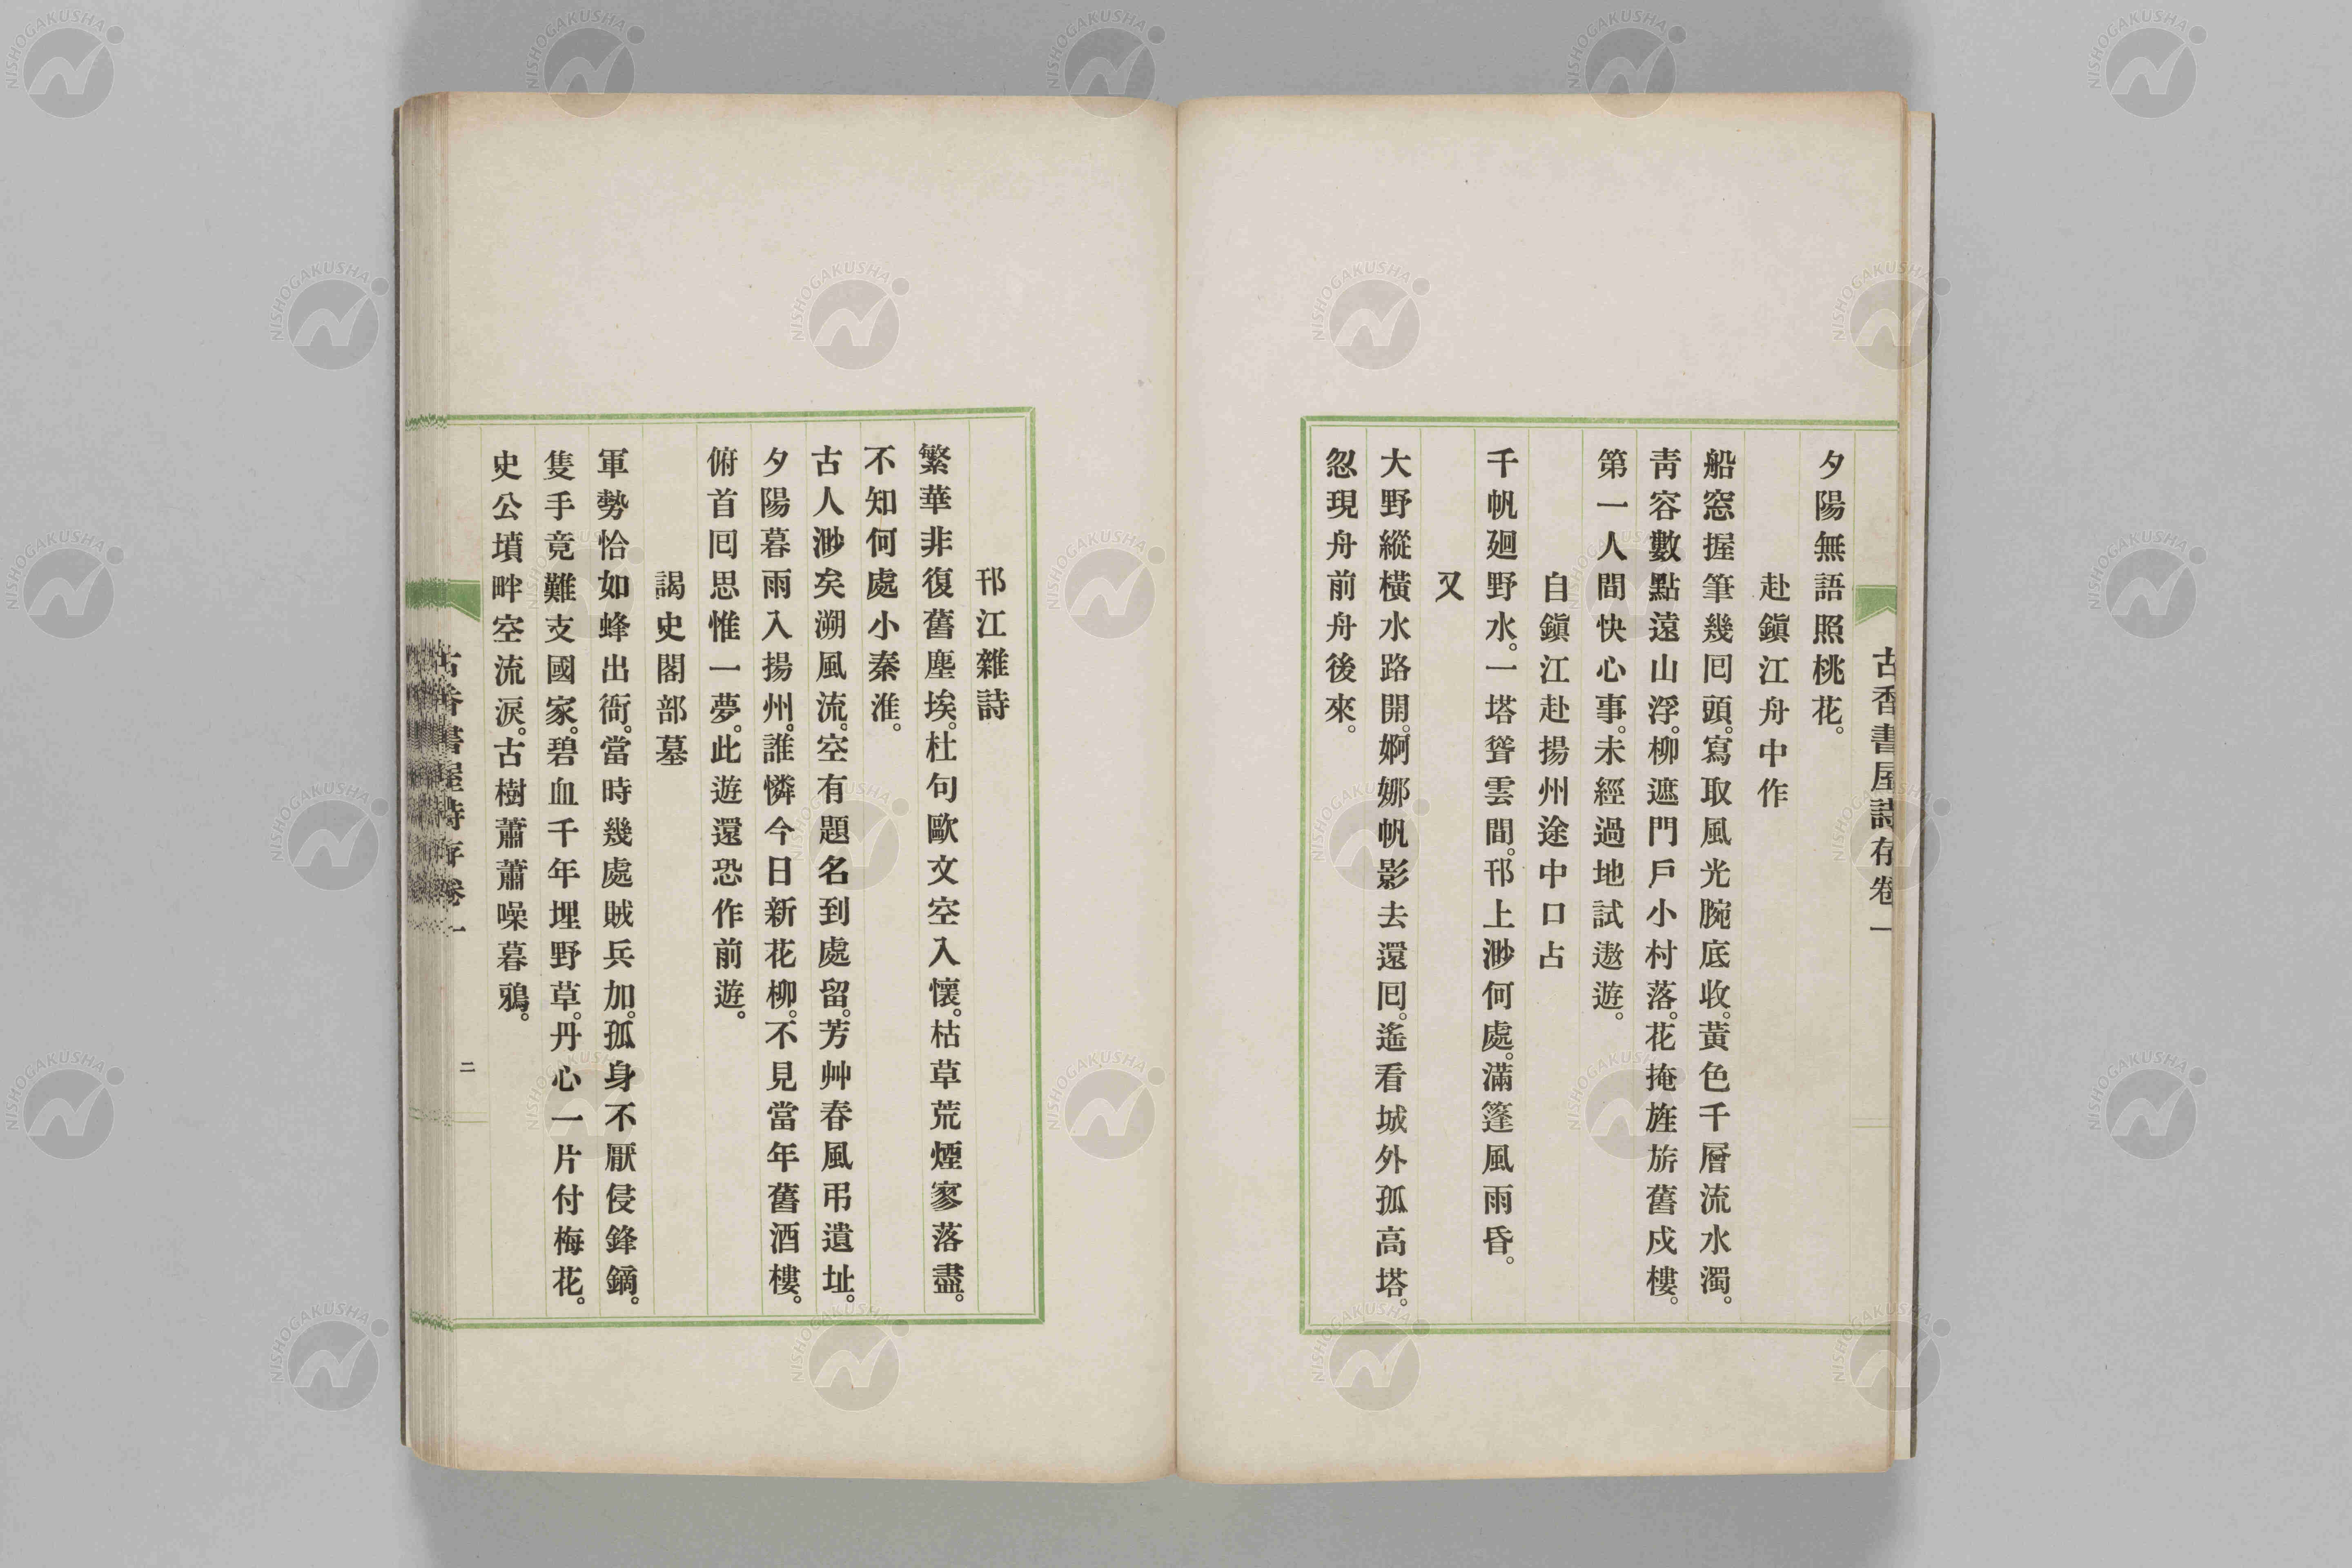 古香書屋詩存卷一
夕陽無語照桃花。
赴鎭江舟中作
船窓握筆幾囘頭。寫取風光腕底收。黃色千層流水濁。
靑容數點遠山浮。柳遮門戶小村落。花掩旌旂舊戍樓。
第一人間快心事。未經過地試遨遊。
自鎭江赴揚州途中口占
千帆廻野水。一塔聳雲間。邗上渺何處。滿篷風雨昏。
又
大野縱橫水路開。婀娜帆影去還囘。遙看城外孤高塔。
忽現舟前舟後來。
邗江雜詩
繁華非復舊塵埃。杜句歐文空入懷。枯草荒煙寥落盡。
不知何處小秦淮。
古人渺矣溯風流。空有題名到處留。芳艸春風弔遺址。
夕陽暮雨入揚州。誰憐今日新花柳。不見當年舊酒樓。
俯首囘思惟一夢。此遊還恐作前遊。
謁史閣部墓
軍勢恰如蜂出衙。當時幾處賊兵加。孤身不厭侵鋒鏑。
隻手竟難支國家。碧血千年埋野草。丹心一片付梅花。
史公墳畔空流淚。古樹蕭蕭噪暮鴉。
古香書屋詩存卷一
二
NISHOGAKUSHA